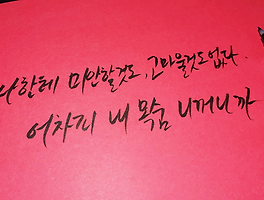 나한테 미안할것도, 고마울것도없다.
어차피 내 목숨 니꺼니까